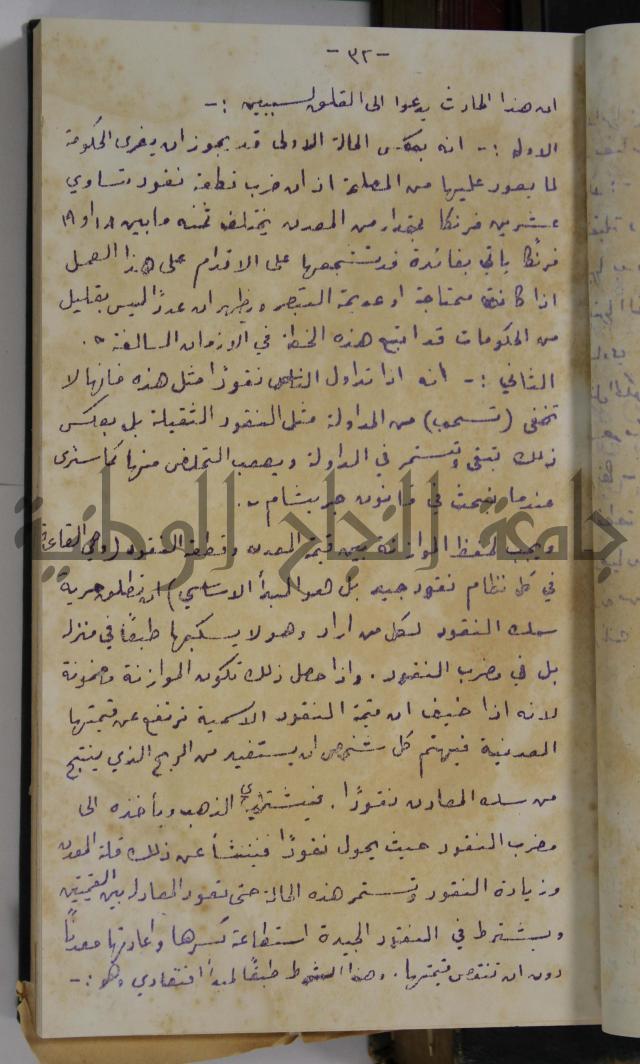 - ٣٢ -
ان هذا الحادث يدعوا الى القلق لسببين :-
الاول :- انه بعكس الحالة الاولى قد يجوز ان يغري الحكومة
لما يعود عليها من المصلحة اذ ان ضرب قطعة نقود تساوي
عشرين فرنكا بمقدار من المعدن يختلف ثمنه ما بين ١٨ او ١٩
فرنكا يأتي بفائدة قد تشجعها على الاقدام على هذا العمل
اذا كانت محتاجة او عديمة التبصر ويظهر ان عددًا ليس بقليل
من الحكومات قد اتبع هذه الخطة في الازمان السالفة .
الثاني :- انه اذا تداول الناس نقودًا مثل هذه فانها لا
تختفي (تسحب) من المداولة مثل النقود الثقيلة بل بعكس
ذلك تبقى وتستمر في المداولة ويصعب التخلص منها كما سنرى
عندما نبحث في قانون جريشام -.
ويجب لحفظ الموازنة بين قيمة المعدن وقطعة النقود (وهي القاعدة
في كل نظام نقود جيد بل هو المبدأ الاساسي) ان تطلق حرية
سك النقود لكل من اراد وهو لا يسكبها طبعًا في منزله
بل في مضرب النقود . واذا حصل ذلك تكون الموازنة مضمونة
لانه اذا خيف ان قيمة النقود الاسمية ترتفع عن قيمتها
المعدنية فيهتم كل شخص ان يستفيد من الربح الذي ينتج
من سك المعادن نقودًا . فيشتري الذهب ويأخذه الى
مضرب النقود حيث يحول نقودًا فينشأ عن ذلك قلة المعدن
وزيادة النقود وتستمر هذه الحالة حتى تعود المعادلة بين القيمتين
ويشترط في النقود الجيدة استطاعة كسرها واعادتها معدنًا
دون ان تنقص قيمتها . وهذا الشرط طبقًا لمبدأ اقتصادي وهو :-
جامعة النجاح الوطنية